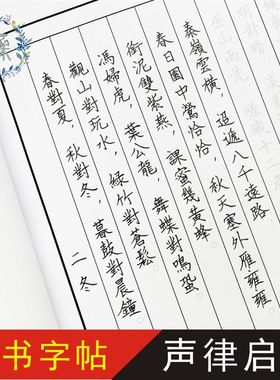 二冬
春對夏，秋對冬，暮鼓對晨鐘。
觀山對玩水，綠竹對蒼松。
馮婦虎，葉公龍，舞蝶對鳴蛩。
銜泥雙紫燕，課蜜幾黃蜂。
春日園中鶯恰恰，秋天塞外雁雍雍。
秦嶺雲橫，迢遞八千遠路
书字帖
声律启